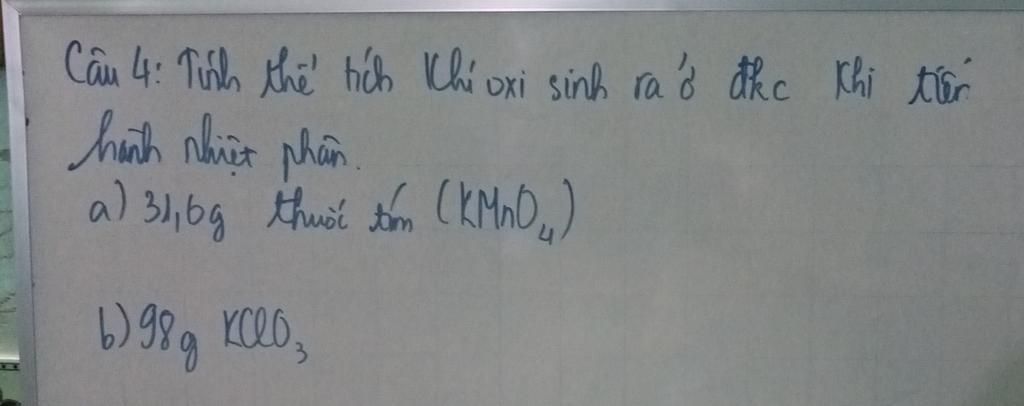 Câu 4: Tính thể tích khí oxi sinh ra ở đkc khi tiến
hành nhiệt phân.
a) 31,6g thuốc tím (KMnO₄)
b) 98g KClO₃